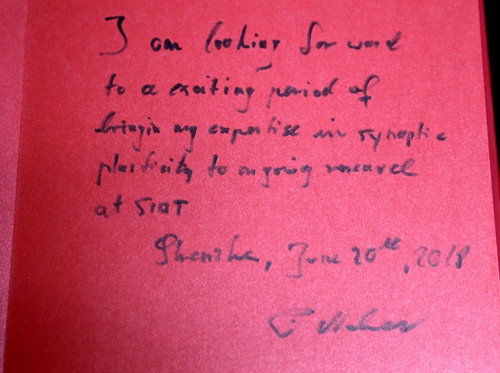 I am looking forward
to a exciting period of
bringin my expertise in synaptic
plasticity to ongoing research
at SIAT
Shenzhen, June 20th, 2018